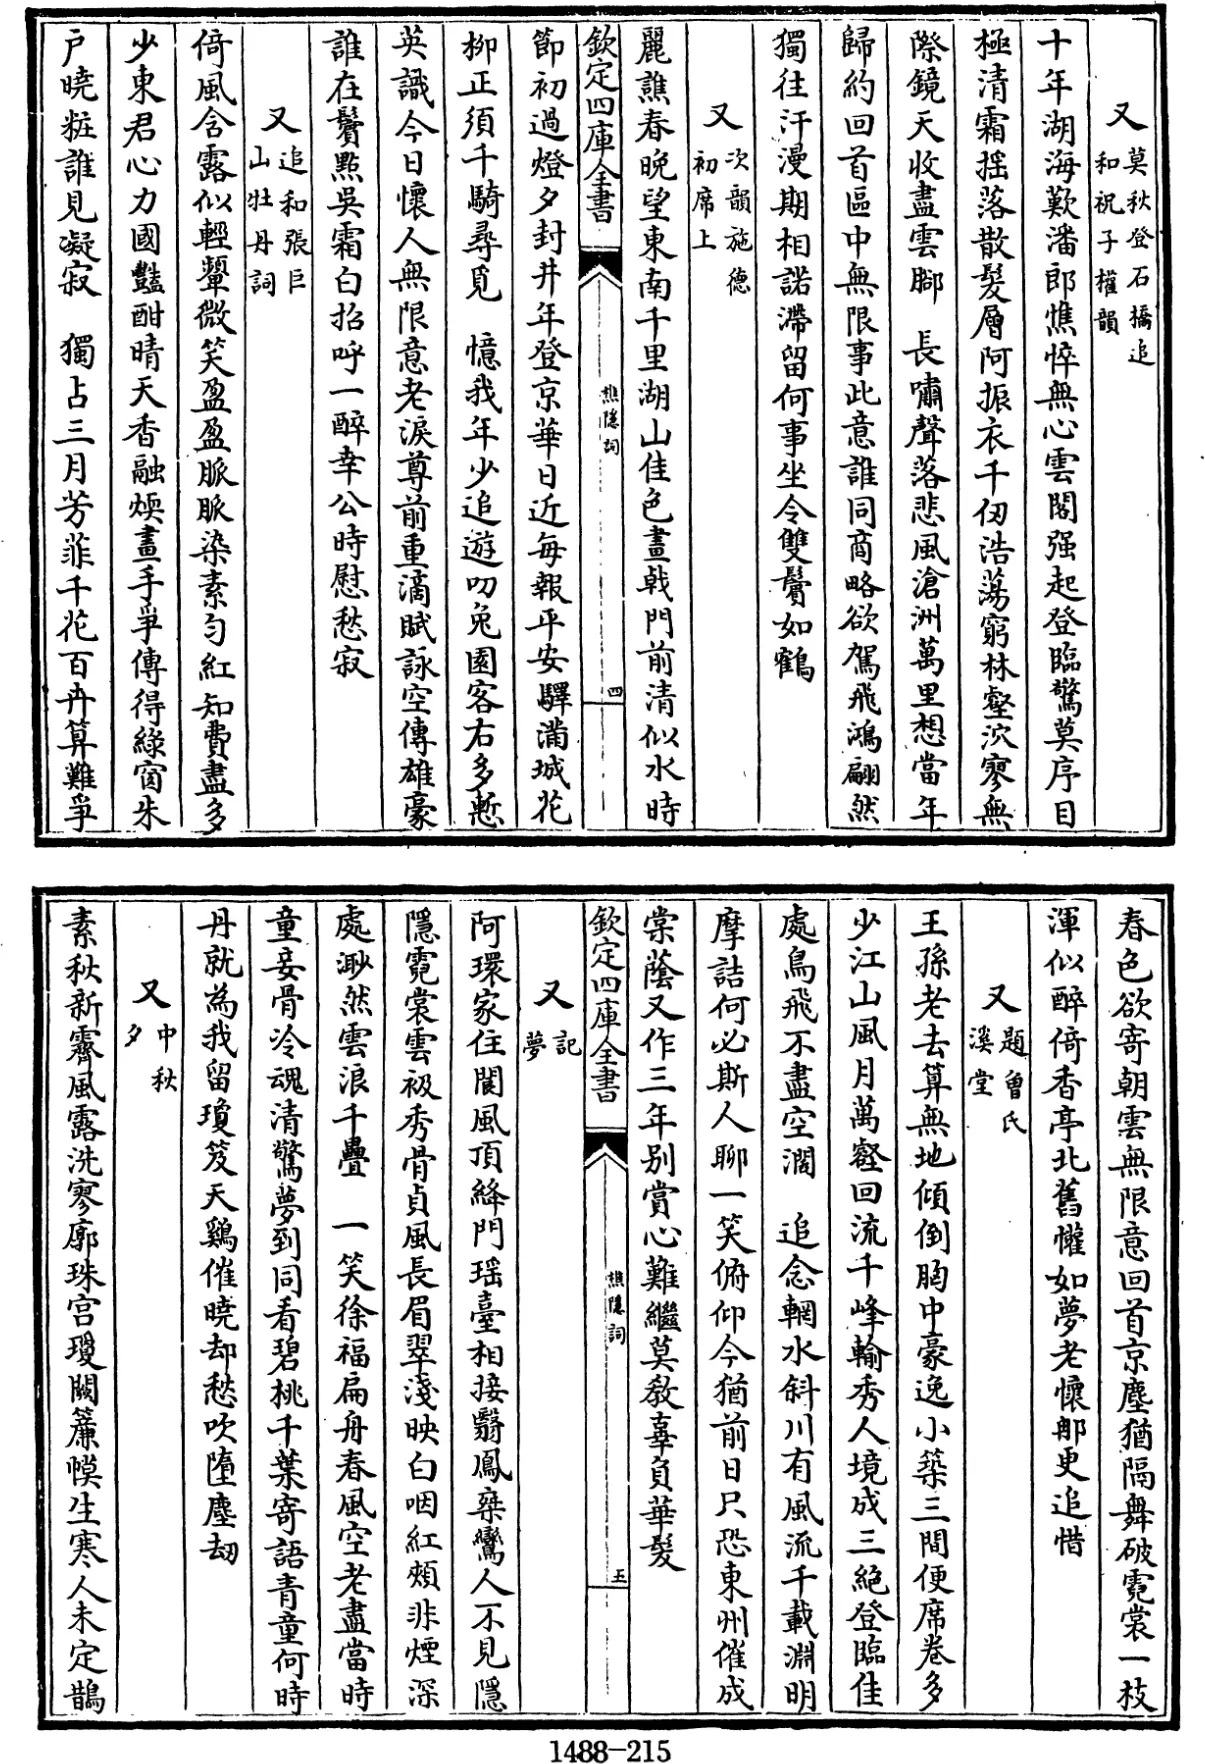 又莫秋登石橋追
和祝子權韻
十年湖海歎潘郎憔悴無心雲閣强起登臨驚莫序目
極清霜揺落散髪層阿振衣千仭浩蕩窮林壑泬寥無
際鏡天收盡雲脚　長嘯聲落悲風滄洲萬里想當年
歸約回首區中無限事此意誰同商略欲駕飛鴻翩然
獨往汗漫期相諾滯留何事坐令雙鬢如鶴
又次韻施德
初席上
麗譙春晩望東南千里湖山佳色畫㦸門前清似水時
欽定四庫全書
樵隱詞
四
節初過燈夕封井年登京華日近每報平安驛滿城花
柳正須千騎尋覓　憶我年少追遊叨兔園客右多慙
英識今日懷人無限意老淚尊前重滴賦詠空傳雄豪
誰在鬢點吳霜白招呼一醉幸公時慰愁寂
又追和張巨
山牡丹詞
倚風含露似輕顰微笑盈盈脈脈染素匀紅知費盡多
少東君心力國豔酣晴天香融煥畫手爭傳得緑窗朱
户曉粧誰見凝寂　獨占三月芳菲千花百卉算難爭
春色欲寄朝雲無限意回首京塵猶隔舞破霓裳一枝
渾似醉倚香亭北舊懽如夢老懷那更追惜
又題曾氏
溪堂
王孫老去算無地傾倒胸中豪逸小築三間便席卷多
少江山風月萬壑回流千峰輸秀人境成三絶登臨佳
處鳥飛不盡空濶　追念輞水斜川有風流千載淵明
摩詰何必斯人聊一笑俯仰今猶前日只恐東州催成
棠蔭又作三年别賞心難繼莫教辜負華髪
欽定四庫全書
樵隱詞
五
又記
夢
阿環家住閬風頂絳門瑶臺相接翳鳳椉鸞人不見隱
隱霓裳雲袂秀骨貞風長眉翠淺映白咽紅頰非煙深
處渺然雲浪千疊　一笑徐福扁舟春風空老盡當時
童妾骨冷魂清驚夢到同看碧桃千葉寄語青童何時
丹就為我留瓊笈天鷄催曉却愁吹墮塵刧
又中秋
夕
素秋新霽風露洗寥廓珠宫瓊闕簾幙生寒人未定鵲
1488-215